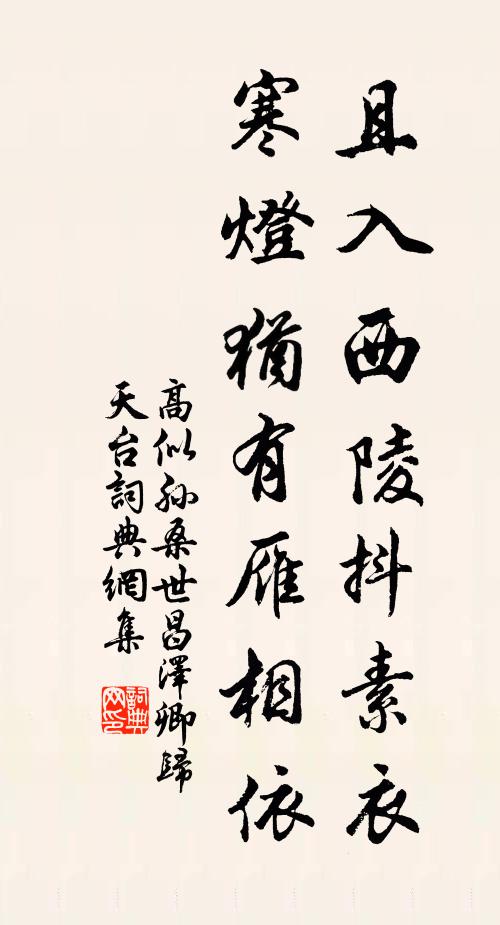 且入西陵抖素衣
寒燈猶有雁相依
高似孫桑世昌澤卿歸
天台詞典網集
詞典
网印